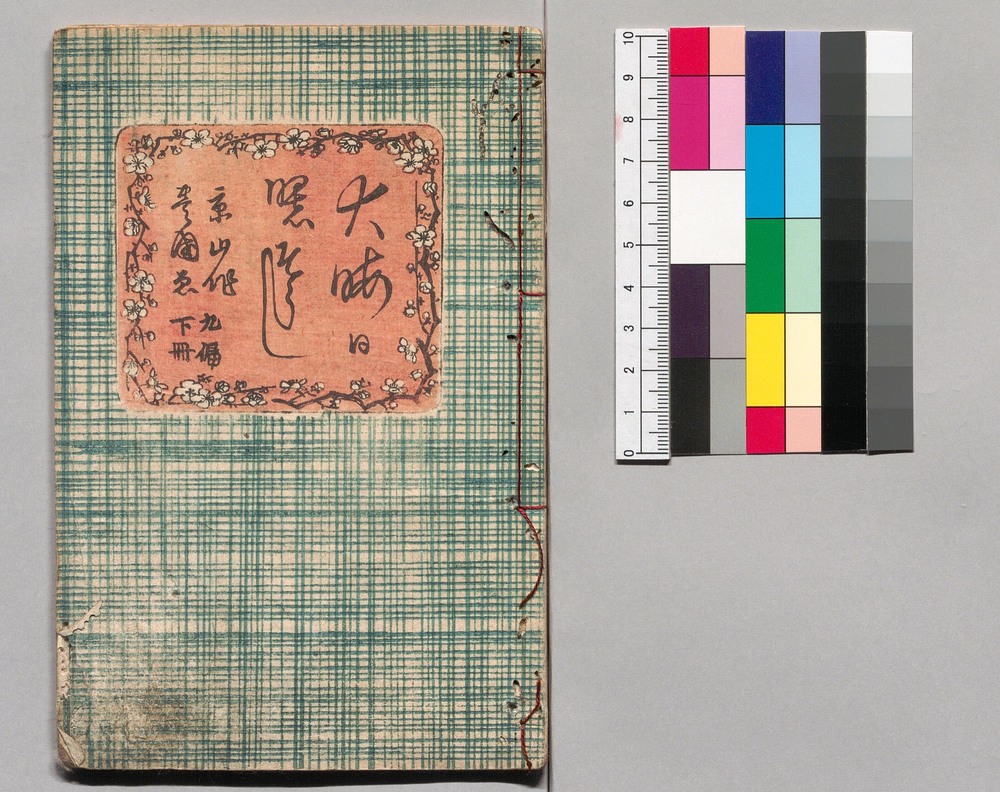 大晦日
曙草帋
京山作
豊国画
九編
下冊
10
9
8
7
6
5
4
3
2
1
0